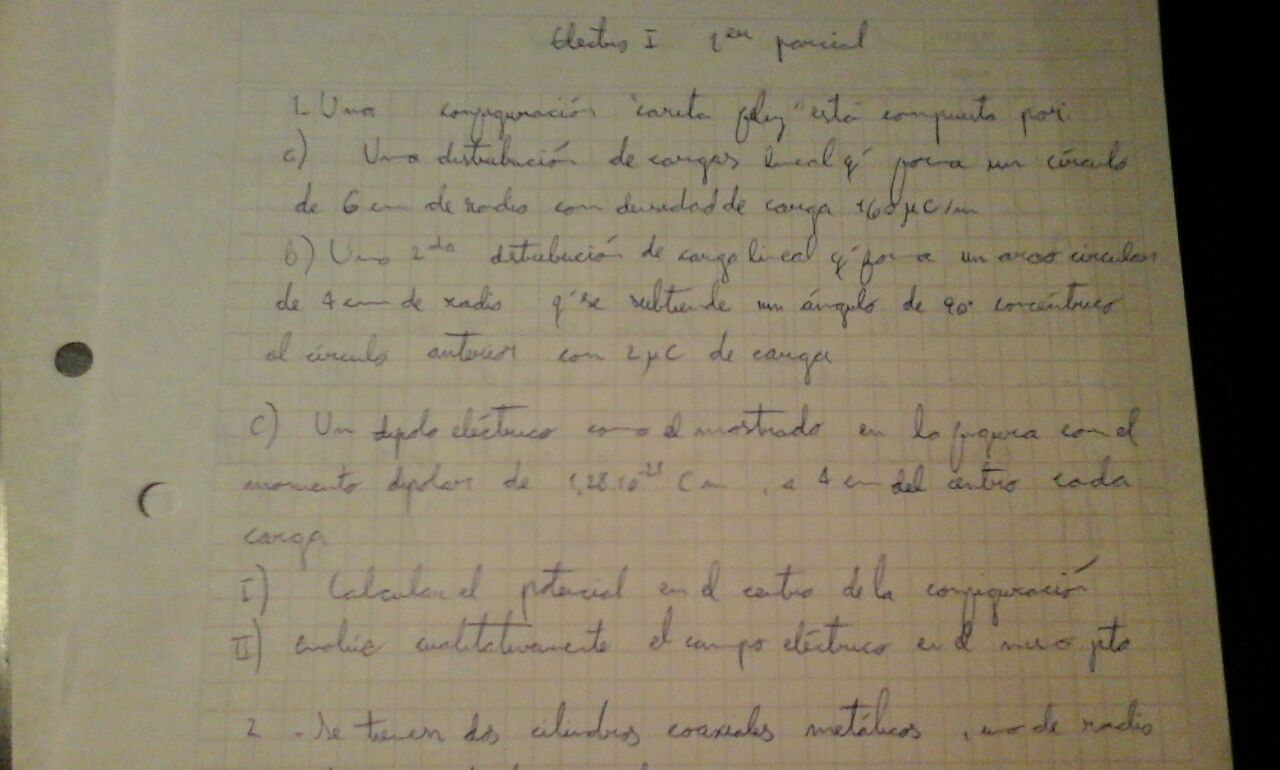 Electro I 1er parcial
1. Una configuración "carita feliz" está compuesta por:
a) Una distribución de cargas lineal q' forma un círculo
de 6 cm de radio con densidad de carga 160 μC/m
b) Una 2da distribución de carga lineal q' forma un arco circular
de 4 cm de radio q' se subtiende un ángulo de 90° concéntrico
al círculo anterior con 2 μC de carga
C) Un dipolo eléctrico como el mostrado en la figura con el
momento dipolar de 1,28.10⁻²¹ C m, a 4 cm del centro cada
carga
I) Calcular el potencial en el centro de la configuración
II) cualitativamente el campo eléctrico en el mismo pto
2. Se tienen dos cilindros coaxiales metálicos, uno de radio